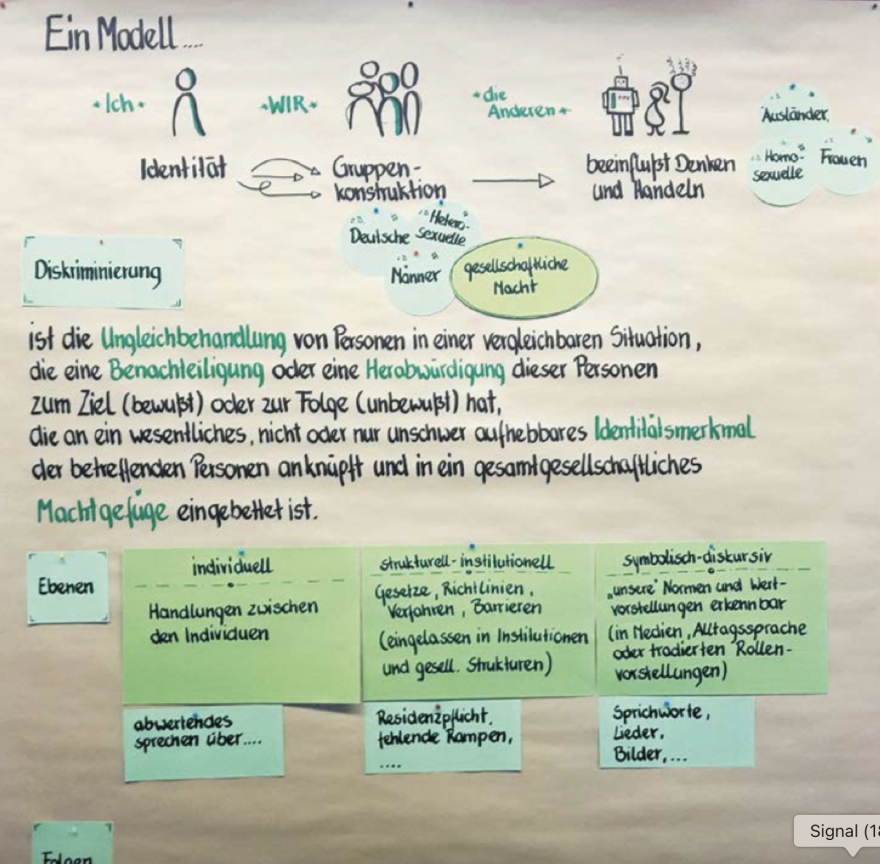 Ein Modell....
• Ich •
• WIR •
• die
Anderen •
Identität
Gruppen-
konstruktion
beeinflußt Denken
und Handeln
Ausländer
Homo-
sexuelle
Frauen
Deutsche
Hetero-
sexuelle
Männer
gesellschaftliche
Macht
Diskriminierung
ist die Ungleichbehandlung von Personen in einer vergleichbaren Situation,
die eine Benachteiligung oder eine Herabwürdigung dieser Personen
zum Ziel (bewußt) oder zur Folge (unbewußt) hat,
die an ein wesentliches, nicht oder nur unschwer aufhebbares Identitätsmerkmal
der betreffenden Personen anknüpft und in ein gesamtgesellschaftliches
Machtgefüge eingebettet ist.
Ebenen
individuell
Handlungen zwischen
den Individuen
strukturell-institutionell
Gesetze, Richtlinien,
Verfahren, Barrieren
(eingelassen in Institutionen
und gesell. Strukturen)
symbolisch-diskursiv
„unsere" Normen und Wert-
vorstellungen erkennbar
(in Medien, Alltagssprache
oder tradierten Rollen-
vorstellungen)
abwertendes
sprechen über....
Residenzpflicht,
fehlende Rampen,
....
Sprichworte,
Lieder,
Bilder,...
Folgen
Signal (18